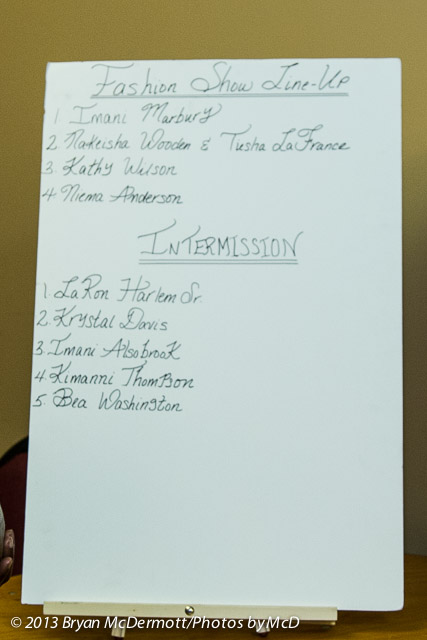 Fashion Show Line-Up
1 Imani Marbury
2 Nakeisha Wooden & Tusha LaFrance
3. Kathy Wilson
4. Niema Anderson
INTERMISSION
1. LaRon Harlem Sr.
2. Krystal Davis
3. Imani Alsobrook
4. Kimanni Thompson
5. Bea Washington
© 2013 Bryan McDermott/Photos byMcD